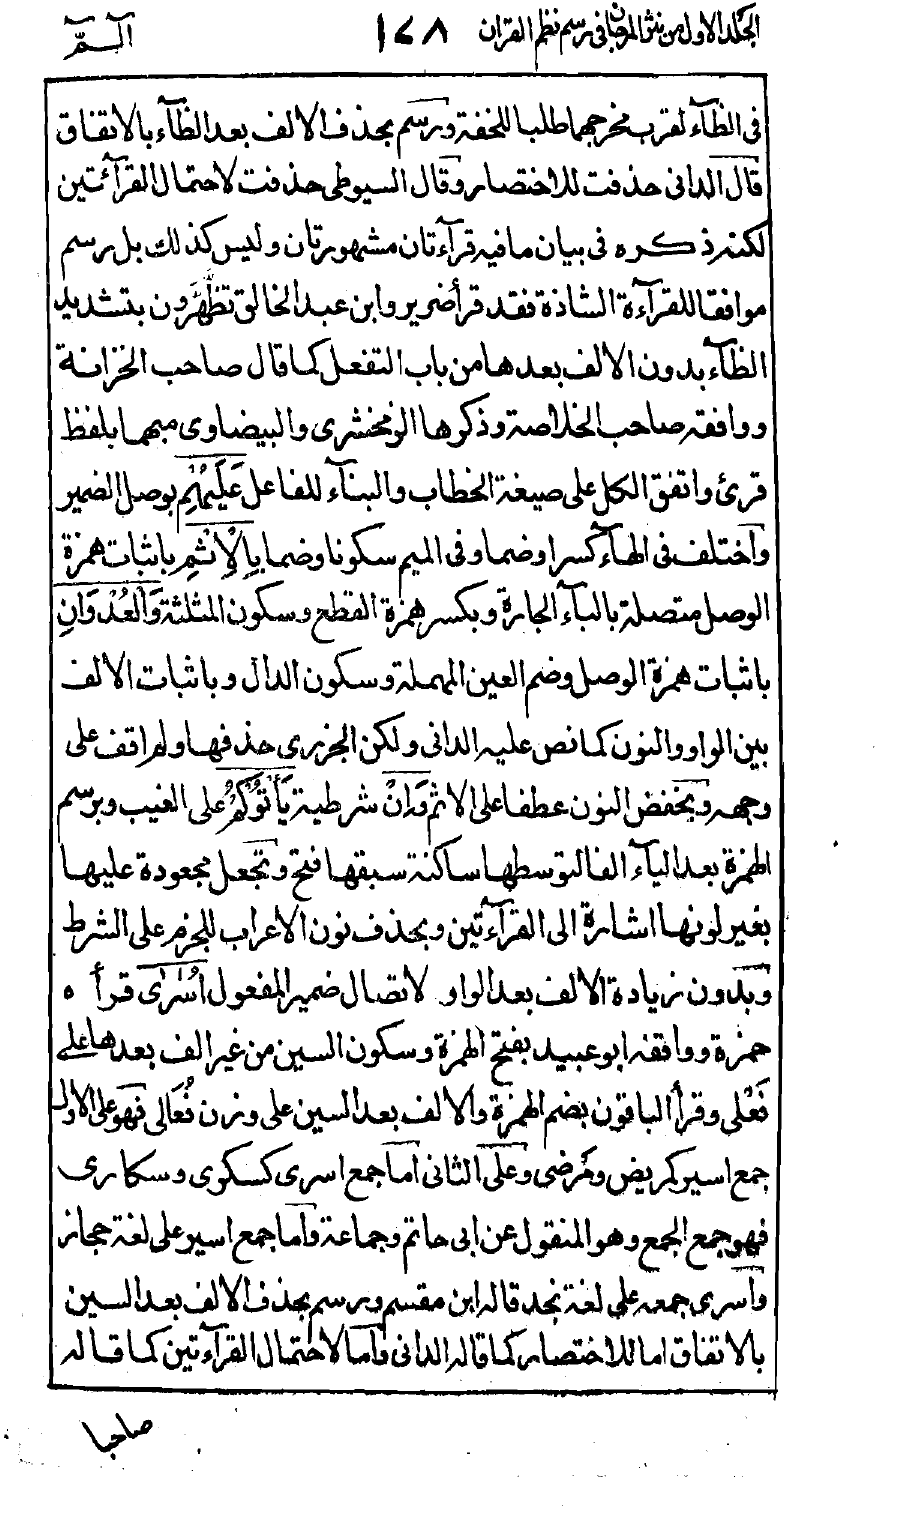 الجلد الاول من نثر المرجان في رسم نظم القران ١٤٨ آلــمّ
في الظآء لقرب مخرجهما طلبا للخفة ورسم بحذف الالف بعد الظآء بالاتفاق
قال الداني حذفت للاختصار وقال السيوطى حذفت لاحتمال القرآئتين
لكنه ذكره فى بيان ما فيه قرآءتان مشهورتان وليس كذلك بل رسم
موافقا للقرآءة الشاذة فقد قرأ ضرير وابن عبد الخالق تَظَّهَّرُون بتشديد
الظآء بدون الالف بعدها من باب التفعل كما قال صاحب الخزانة
ووافقه صاحب الخلاصة وذكرها الزمخشرى والبيضاوى مبهما بلفظ
قرئ واتفق الكل على صيغة الخطاب والبنآء للفاعل عَلَيْهِمْ بوصل الضمير
واختلف فى الهآء كسرا وضما وفى الميم سكونا وضما بِالْاِثْمِ باثبات همزة
الوصل متصلة بالبآء الجارة وبكسر همزة القطع وسكون المثلثة وَالْعُدْوَانِ
باثبات همزة الوصل وضم العين المهملة وسكون الدال وباثبات الالف
بين الواو والنون كما نص عليه الدانى ولكن الجزرى حذفها ولم اقف على
وجهه وبخفض النون عطفا على الاثم وَاِنْ شرطية يَأْتُوْكُمْ على الغيب وبرسم
الهمزة بعد اليآء الفا لتوسطها ساكنة سبقها فتح وتجعل مجعودة عليها
بغير لونها اشارة الى القرآءتين وبحذف نون الاعراب للجزم على الشرط
وبدون زيادة الالف بعد الواو لاتصال ضمير المفعول اُسٰرٰى قرأ ه
حمزة ووافقه ابو عبيد بفتح الهمزة وسكون السين من غير الف بعدها على
فَعْلى وقرأ الباقون بضم الهمزة والالف بعد السين على وزن فُعَالى فهو على الاول
جمع اسير كمريض ومَرْضى وعلى الثانى اما جمع اسرى كسكرى وسكارى
فهو جمع الجمع وهو المنقول عن ابى حاتم وجماعة واما جمع اسير على لغة حجاز
واسرى جمعه على لغة نجد قاله ابن مقسم ورسم بحذف الالف بعد السين
بالاتفاق اما للاختصار كما قاله الدانى واما لاحتمال القرآءتين كما قاله
صاحبا